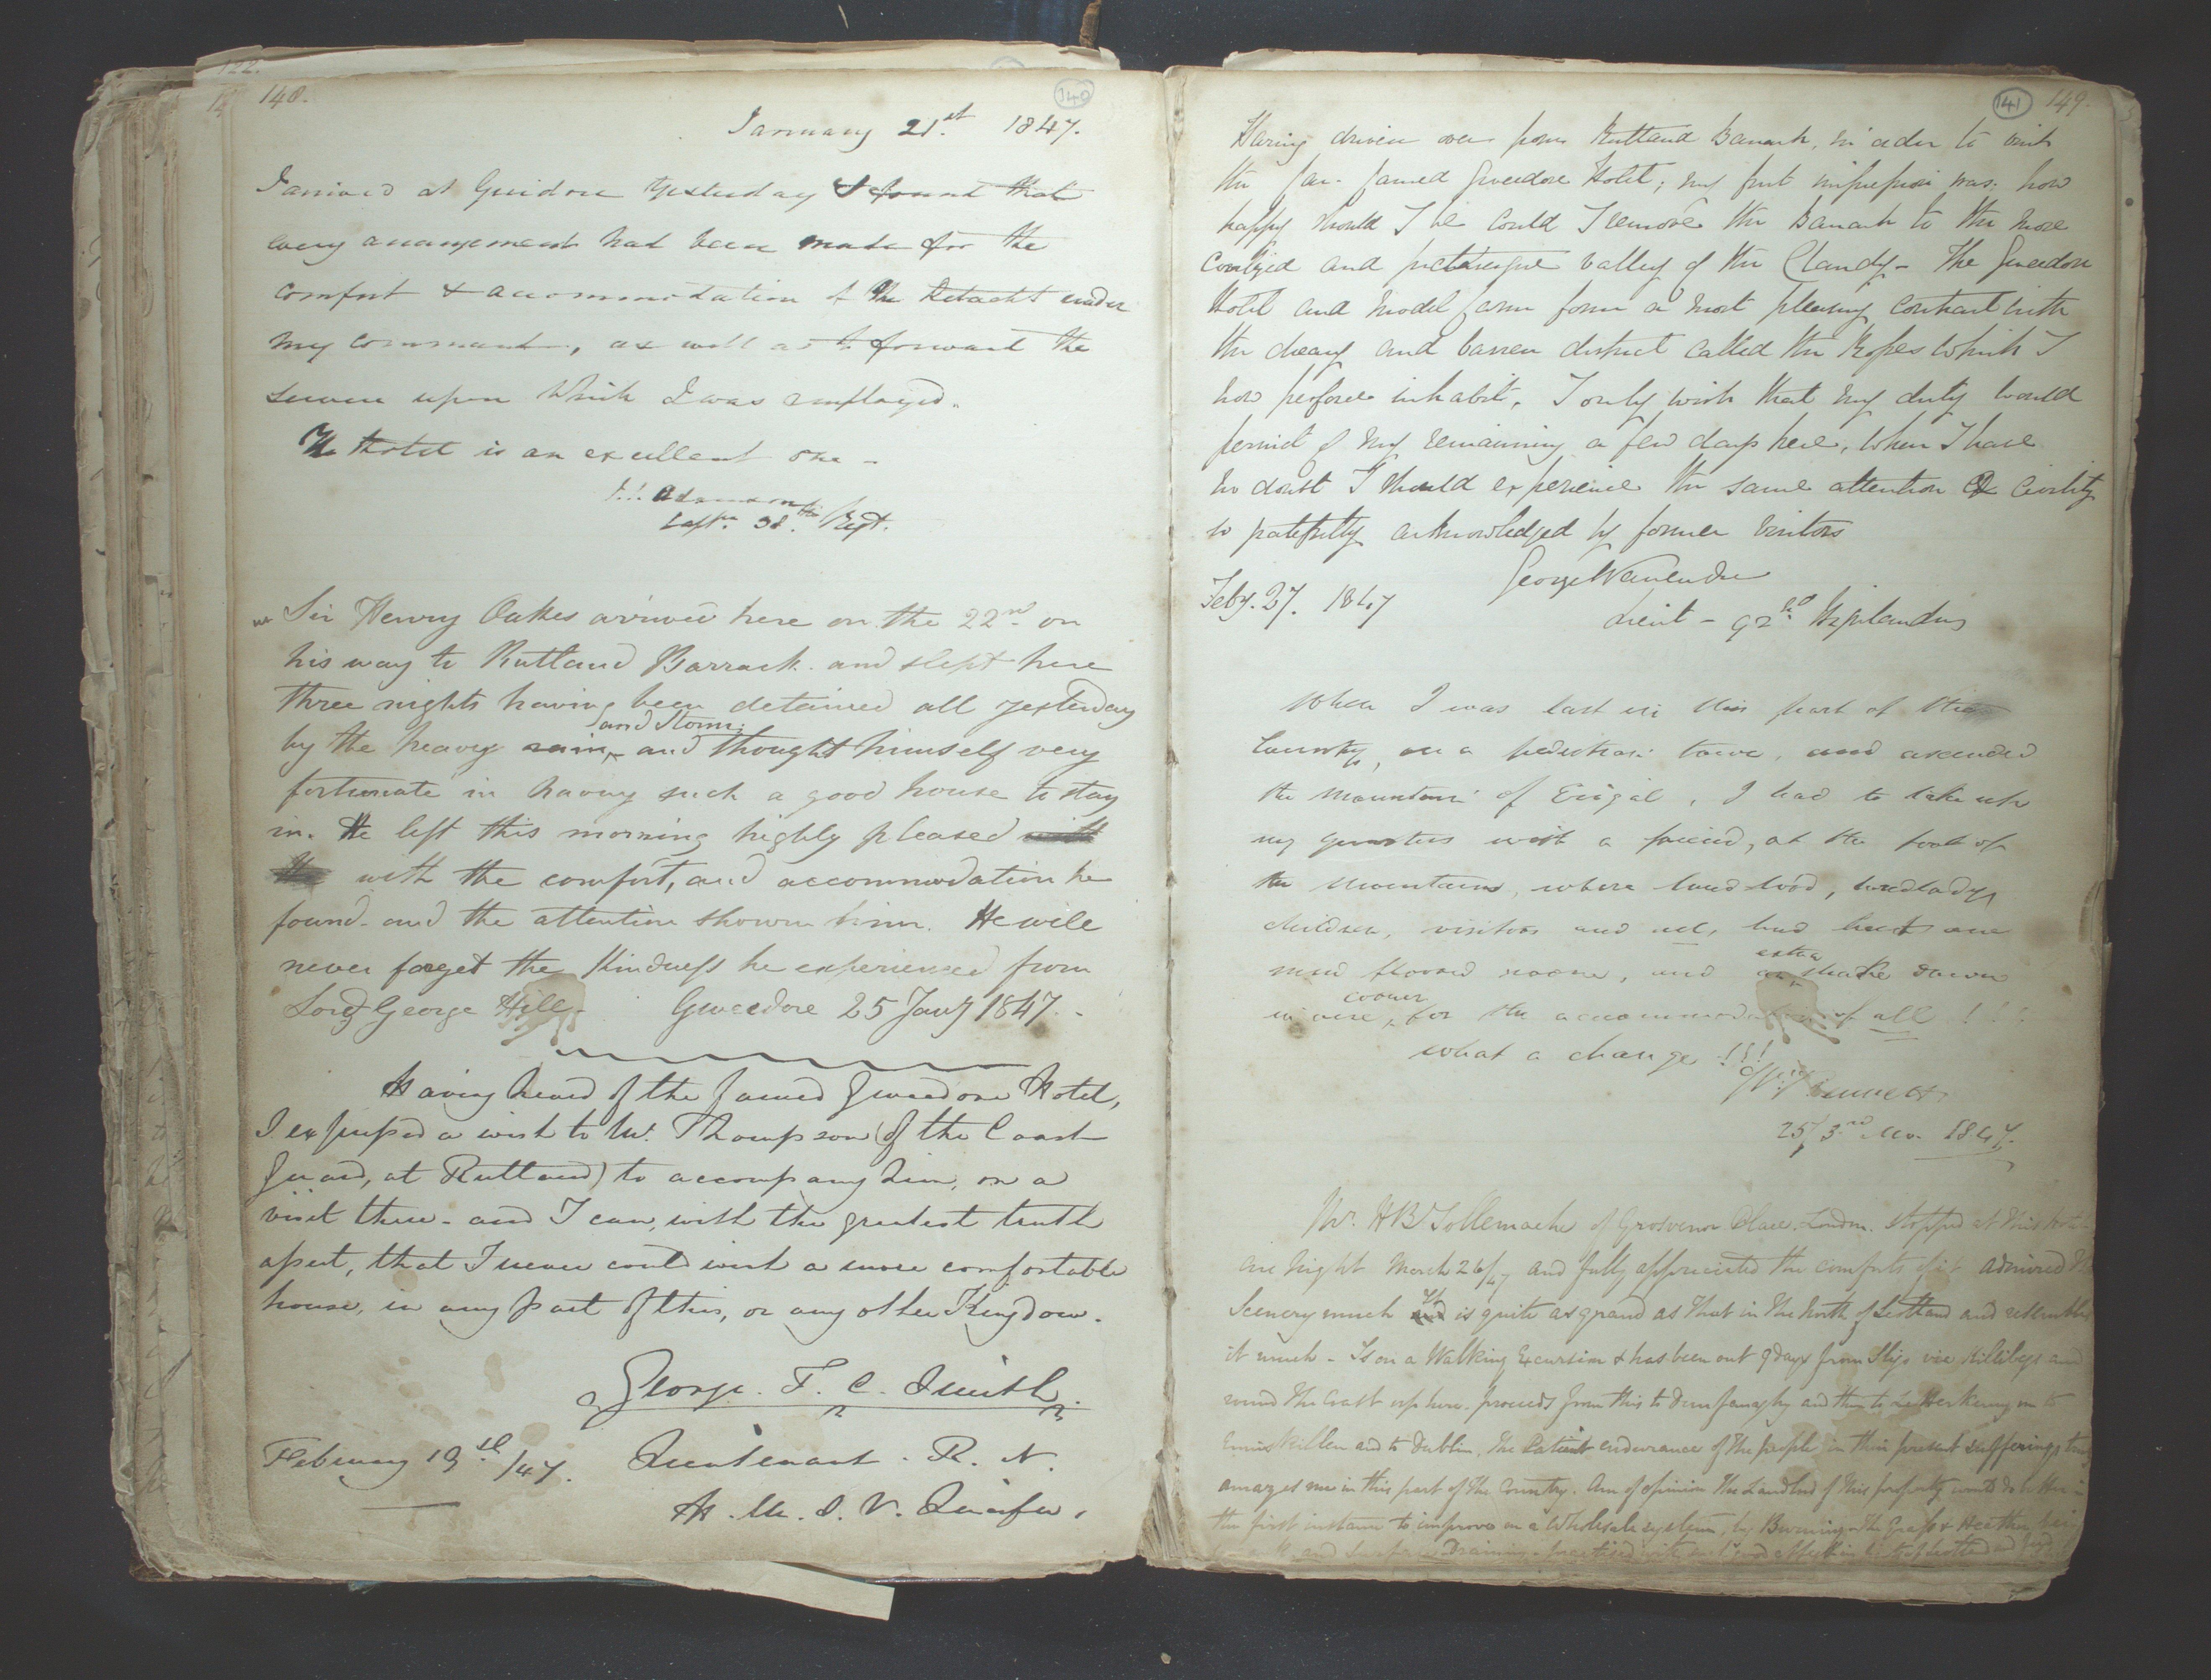 122.
148.
140
January 21st. 1847.
I arrived at Guidore Yesterday & found that
every arrangement had been made for the
comfort & accommodation of the Detacht under
my command, as well as to forward the
service upon which I was employed.
The Hotel is an excellent one -
Adamson
Captn. 38th Regt.
Sir Henry Oakes arrived here on the 22nd. on
his way to Rutland Barrack and slept here
three nights having been detained all yesterday
and Storm;
by the heavy rain, and thought himself very
fortunate in having such a good house to stay
in. He left this morning highly pleased with
the with the comfort, and accommodation he
found - and the attention shown him. He will
never forget the Kindness he experienced from
Lord George Hill - Gweedore 25 Jany 1847. -
Having heard of the famed Gweedore Hotel,
I expressed a wish to Mr. Thompson (of the Coast
Guard, at Rutland) to accompany him, on a
visit there - and I can, with the greatest truth
assert, that I never could wish a more comfortable
house, in any part of this, or any other Kingdom.
George. F. C. Smith.
February 19th/47. Lieutenant. R. N.
H. M. S. V. Lucifer.
141
149.
Having driven over from Rutland Barrack, in order to visit
the far-famed Gweedore Hotel; my first impression was; how
happy should I be could I remove the Barrack to the more
and picturesque valley of the Clandy - The Gweedore
Hotel and Model farm form a most pleasing contrast with
the dreary and barren district called the Rosses which I
now perforce inhabit. I only wish that my duty would
permit of my remaining a few days here, when I have
no doubt I should experience the same attention & civility
so gratefully acknowledged by former visitors
George Warrender
Feby. 27. 1847
Lieut - 92nd Highlanders
When I was last in this part of the
Country, on a pedestrian tour, and ascended
the mountain of Erigal, I had to take up
my quarters with a friend, at the foot of
the mountains, where landlord, landlady,
children, visitors and all, had but one
extra
mud floored room, and an shake down
corner
in one, for the accommodation of all ! ! !
what a change ! ! !
Bennett
25/3rd Mo. 1847.
Mr. H B Tollemache of Grosvenor Place. London. stopped at this Hotel
one Night March 26/47 and fully appreciated the comforts of it admired the
Scenery much and is quite as grand as that in the North of Scotland and resembles
it much - Is on a Walking Excursion & has been out 9 days from Sligo via Killibegs and
round the Coast up here. proceeds from this to Dunfanaghy and then to Letterkenny on to
Enniskillen and to Dublin. The Patient endurance of the people in their present sufferings truly
amazes me in this part of the Country. Am of opinion the Landlord of this property would do better in
the first instance to improve on a Wholesale system, by Burning the Grass & Heather
and Surface Draining -